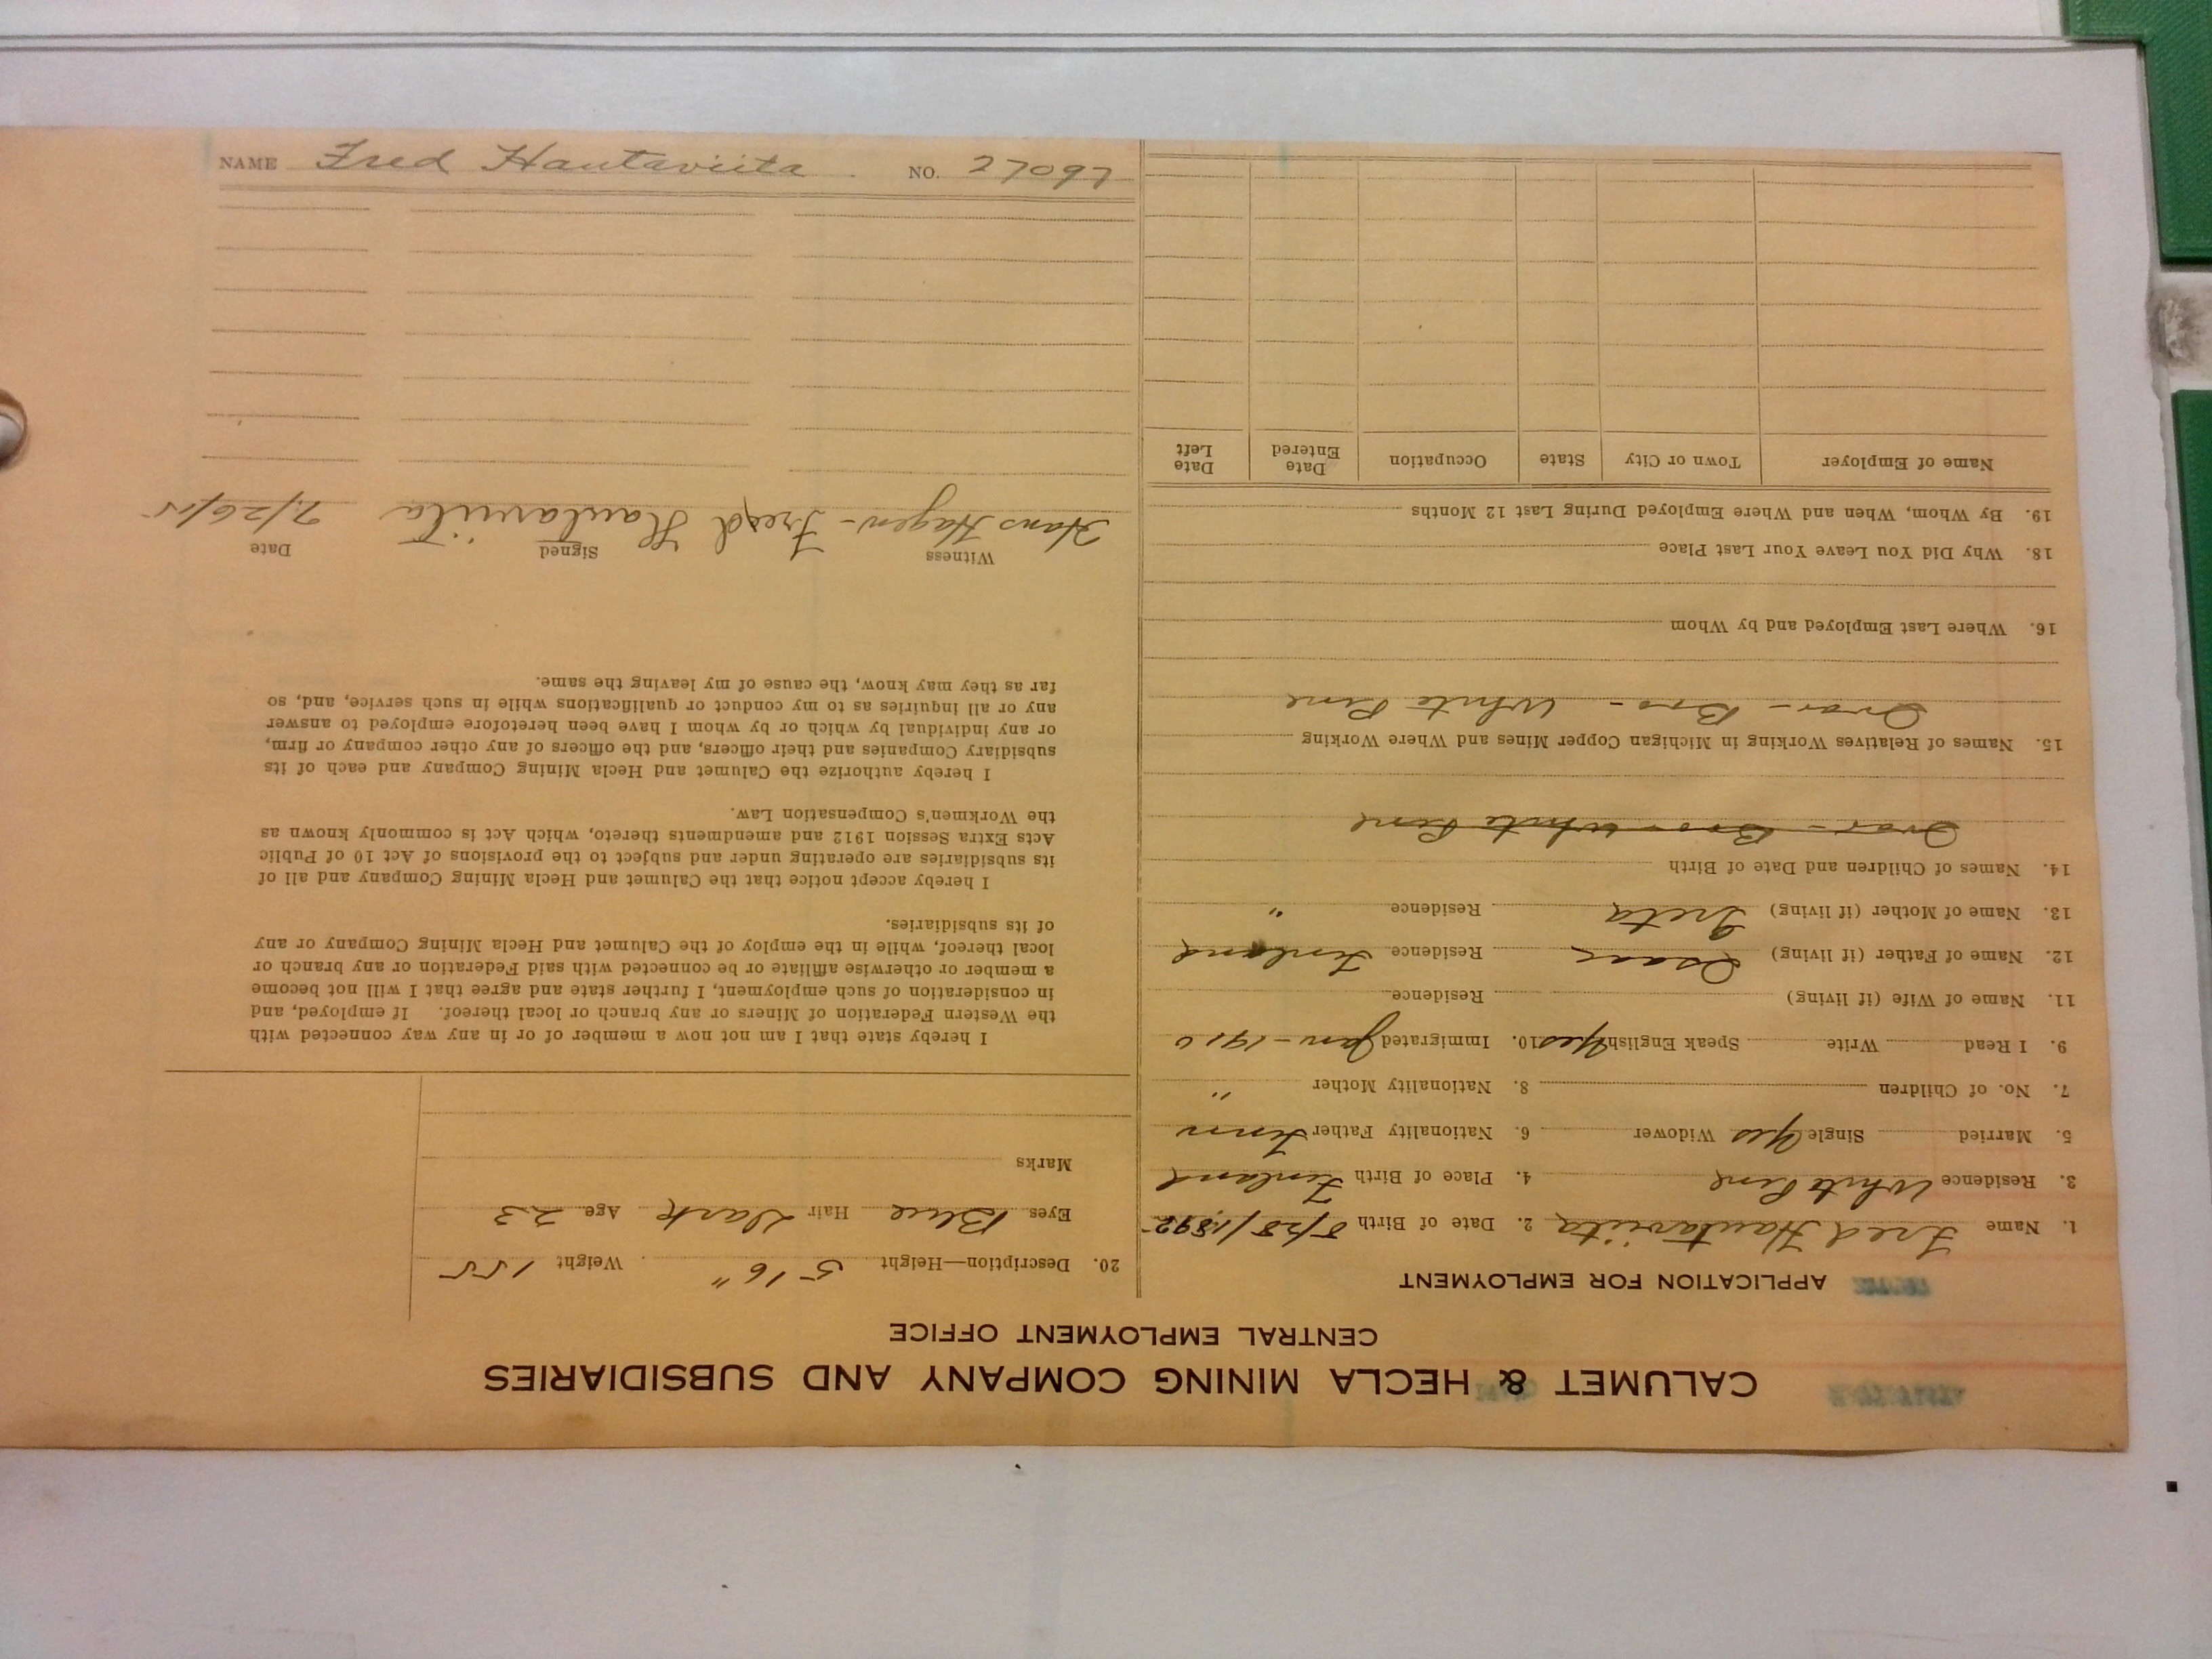 CALUMET & HECLA MINING COMPANY AND SUBSIDIARIES
CENTRAL EMPLOYMENT OFFICE
APPLICATION FOR EMPLOYMENT
1. Name Fred Hautaviita 2. Date of Birth 5/25/1892
3. Residence White Pine 4. Place of Birth Finland
5. Married Single Yes Widower 6. Nationality Father Finn
7. No. of Children 8. Nationality Mother "
9. I Read Write Speak English Yes 10. Immigrated Jan - 1910
11. Name of Wife (if living) Residence
12. Name of Father (if living) Isaac Residence Finland
13. Name of Mother (if living) Greta Residence "
14. Names of Children and Date of Birth
Ivar - Bro - White Pine
15. Names of Relatives Working in Michigan Copper Mines and Where Working
Ivar - Bro - White Pine
16. Where Last Employed and by Whom
18. Why Did You Leave Your Last Place
19. By Whom, When and Where Employed During Last 12 Months
Name of Employer Town or City State Occupation Date Entered Date Left
20. Description—Height 5 ' 6 " Weight 155
Eyes Blue Hair Dark Age 23
Marks
I hereby state that I am not now a member of or in any way connected with
the Western Federation of Miners or any branch or local thereof. If employed, and
in consideration of such employment, I further state and agree that I will not become
a member or otherwise affiliate or be connected with said Federation or any branch or
local thereof, while in the employ of the Calumet and Hecla Mining Company or any
of its subsidiaries.
I hereby accept notice that the Calumet and Hecla Mining Company and all of
its subsidiaries are operating under and subject to the provisions of Act 10 of Public
Acts Extra Session 1912 and amendments thereto, which Act is commonly known as
the Workmen's Compensation Law.
I hereby authorize the Calumet and Hecla Mining Company and each of its
subsidiary Companies and their officers, and the officers of any other company or firm,
or any individual by which or by whom I have been heretofore employed to answer
any or all inquiries as to my conduct or qualifications while in such service, and, so
far as they may know, the cause of my leaving the same.
Witness Signed Date
Hans Hagen - Fred Hautaviita 7/26/15
NAME Fred Hautaviita NO. 27097